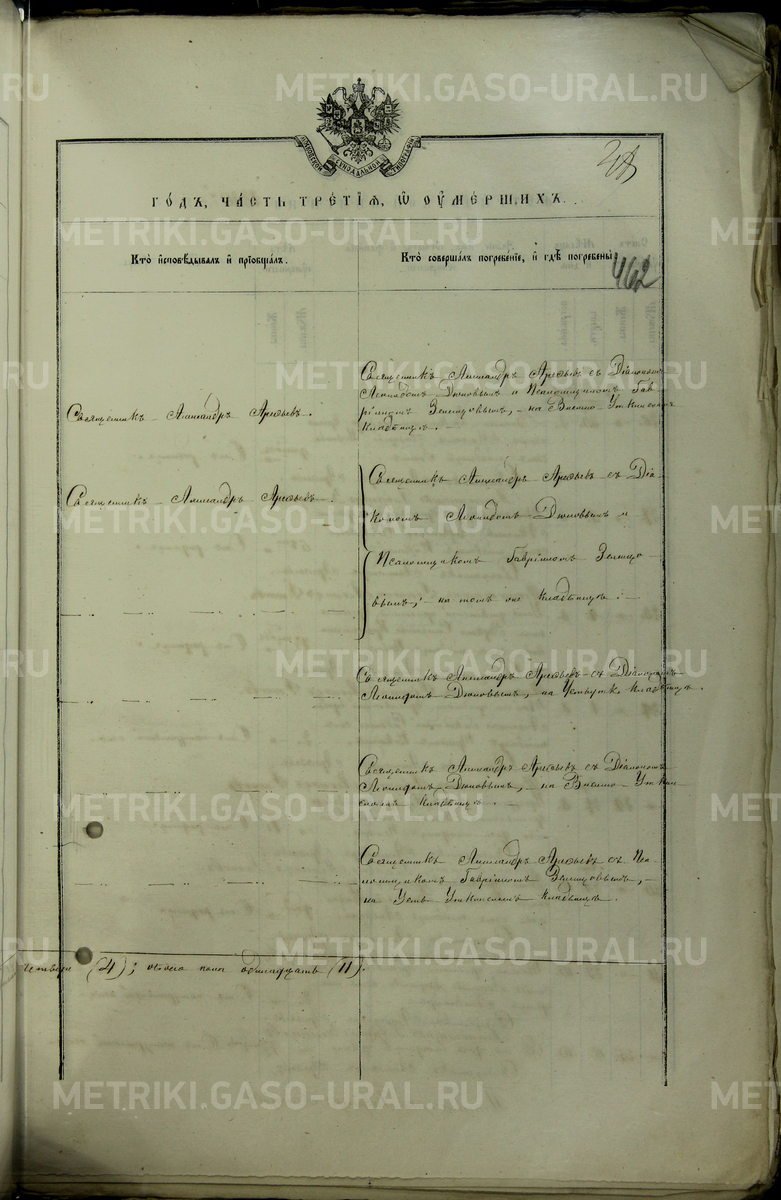 METRIKI.GASO-URAL.RU
МОСКОВСКОЙ СѴНОДАЛЬНОЙ ТИПОГРАФІИ
28
ГО́ДЪ, ЧА́СТЬ ТРЕ́ТІѦ, Ѡ҆ ОУ҆МЕ́РШИХЪ.
Кто̀ и҆сповѣ́дывалъ и҆ прїѡбща́лъ.
Кто̀ соверша́лъ погребе́нїе, и҆ гдѣ̀ погребены̀.
462
Священникъ Александръ Арефьевъ.
Священникъ Александръ Арефьевъ съ Діакономъ
Леонидомъ Дюковымъ и Псаломщикомъ Гав-
ріиломъ, на Висимо-Уткинскомъ
кладбищѣ.
Священникъ Александръ Арефьевъ.
Священникъ Александръ Арефьевъ съ Діа-
кономъ Леонидомъ Дюковымъ и
Псаломщикомъ Гавріиломъ
на томъ же кладбищѣ.
Священникъ Александръ Арефьевъ съ Діакономъ
Леонидомъ Дюковымъ, на кладбищѣ.
Священникъ Александръ Арефьевъ съ Діакономъ
Леонидомъ Дюковымъ, на Висимо-Уткин
скомъ кладбищѣ.
Священникъ Александръ Арефьевъ съ Пса-
ломщикомъ Гавріиломъ
на Усть-Уткинскомъ кладбищѣ.
четыре (4); обоего пола одинадцать (11).